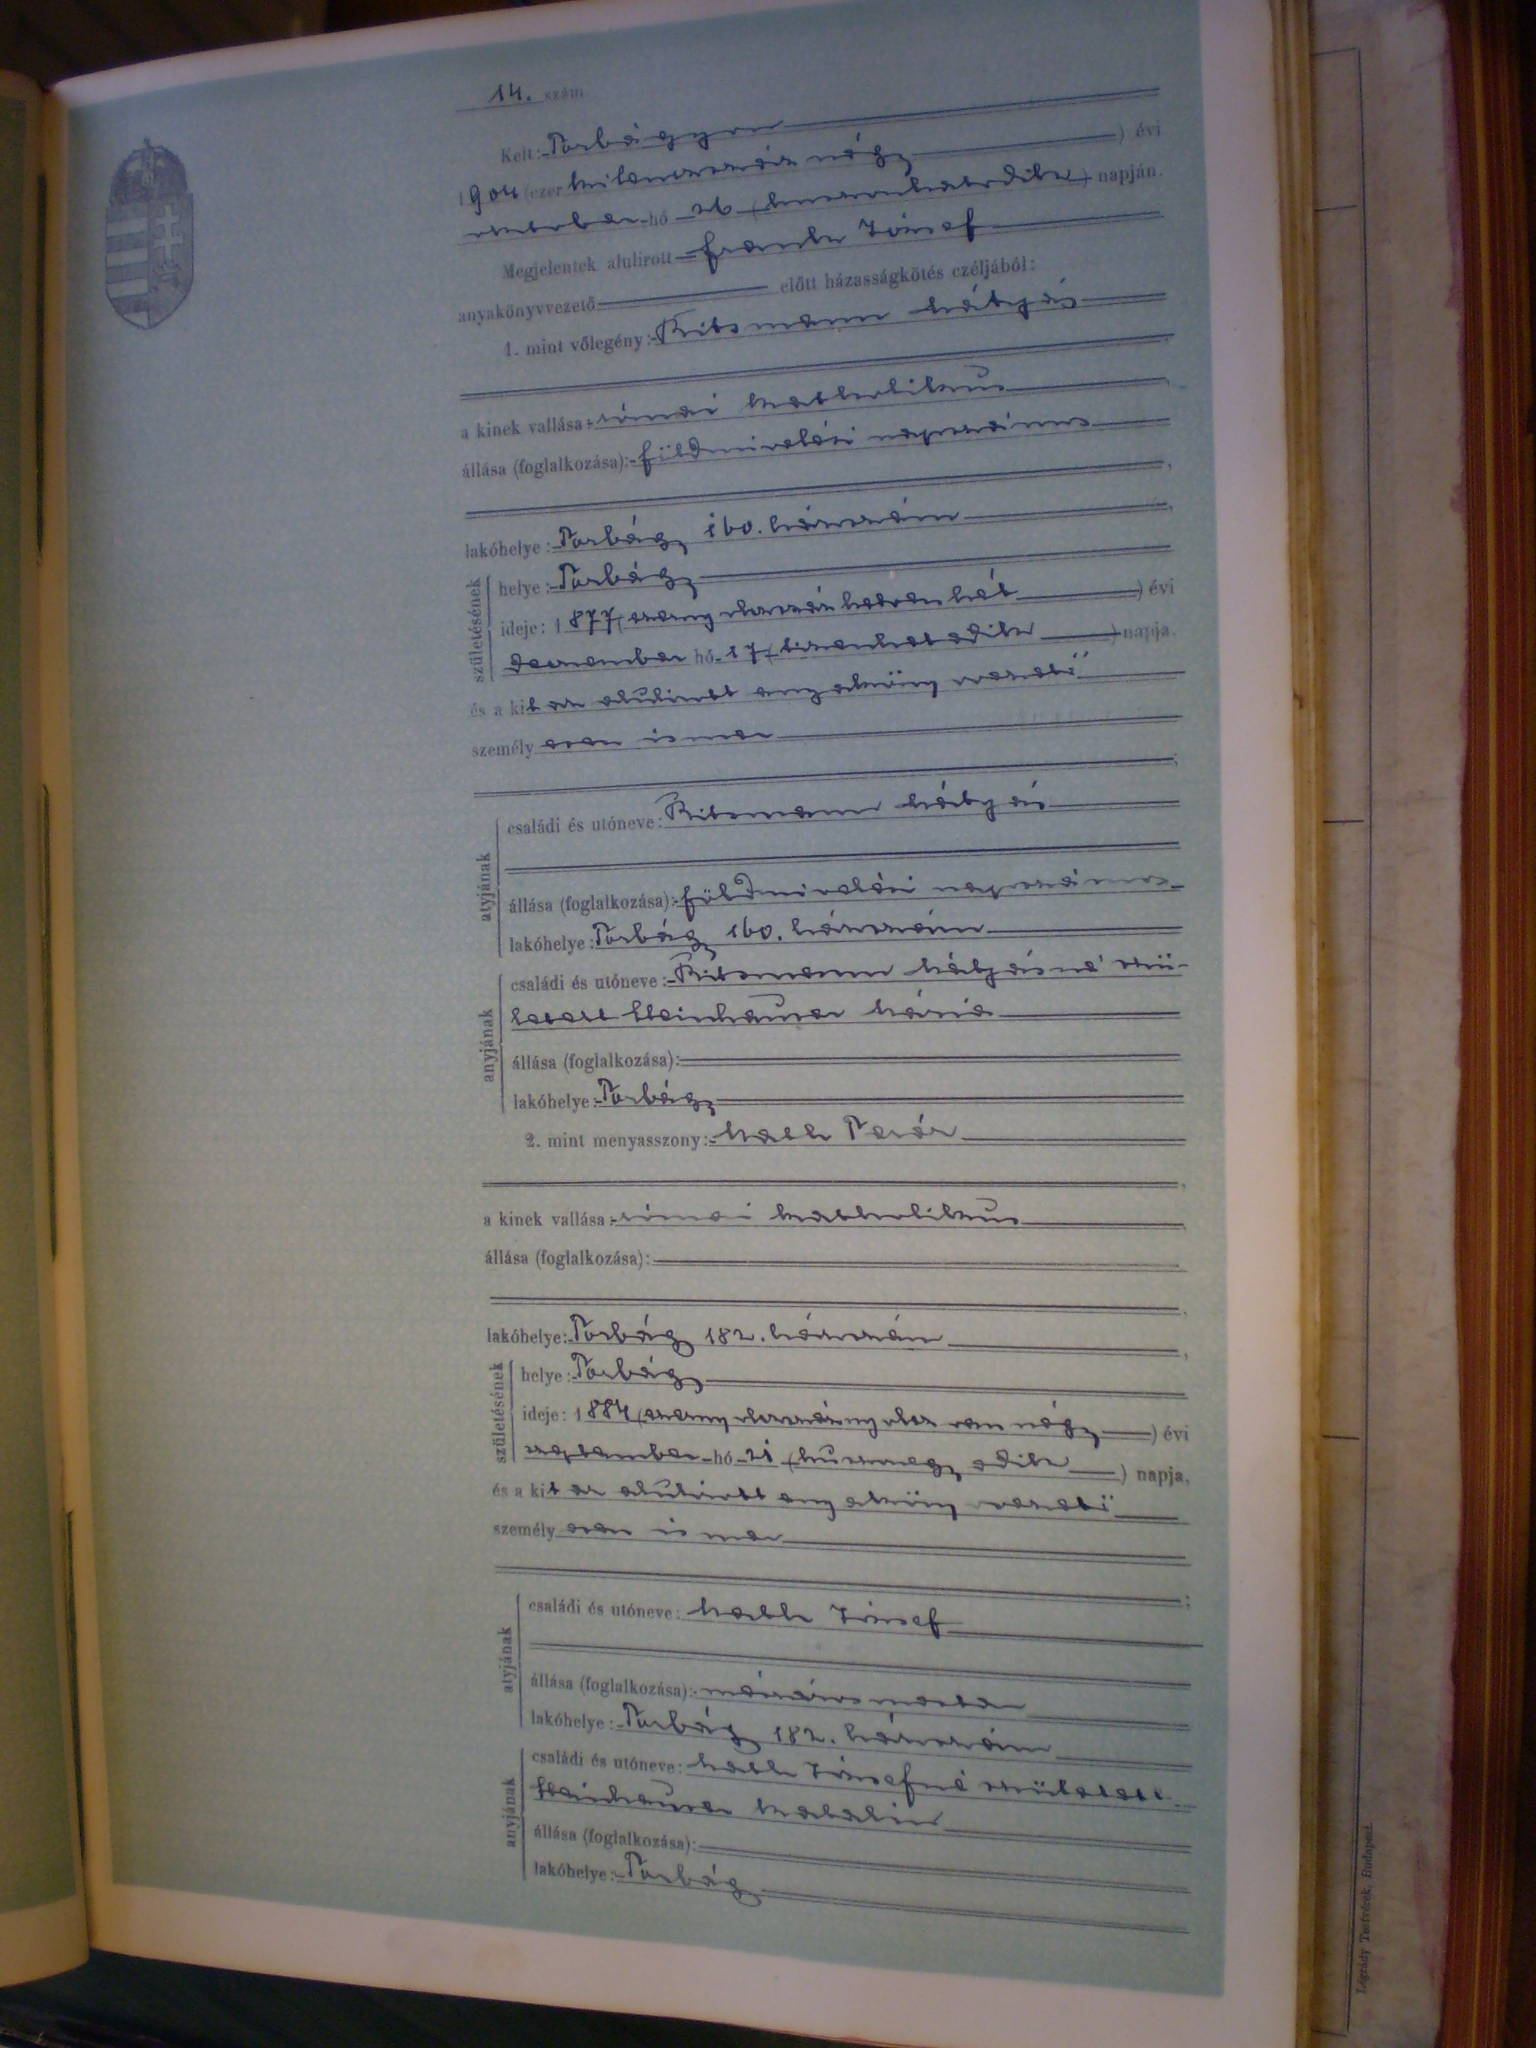 14. szám
Kelt: Torbágyon
1904 (ezer kilenczszáz négy) évi
október hó 26 (huszonhatodik) napján.
Megjelentek alulirott Frank József
anyakönyvvezető előtt házasságkötés czéljából:
1. mint vőlegény: Ritsmann Mátyás
a kinek vallása: római katholikus
állása (foglalkozása): földmivelési napszámos
lakóhelye: Torbágy 160. házszám
születésének
helye: Torbágy
ideje: 1877 (ezernyolczszázhetvenhét) évi
deczember hó 17 (tizenhetedik) napja.
és a kit az alulirott anyakönyvvezető
személyesen ismer
atyjának
családi és utóneve: Ritsmann Mátyás
állása (foglalkozása): földmivelési napszámos
lakóhelye: Torbágy 160. házszám
anyjának
családi és utóneve: Ritsmann Mátyásné szü-
letett Steinhauser Mária
állása (foglalkozása):
lakóhelye: Torbágy
2. mint menyasszony: Teréz
a kinek vallása: római katholikus
állása (foglalkozása):
lakóhelye: Torbágy 182. házszám
születésének
helye: Torbágy
ideje: 1884 (ezernyolczszáznyolczvannégy) évi
szeptember hó 21 (huszonegyedik) napja,
és a kit az alulirott anyakönyvvezető
személyesen ismer
atyjának
családi és utóneve: József
állása (foglalkozása): mészáros mester
lakóhelye: Torbágy 182. házszám
anyjának
családi és utóneve: Józsefné született
Steinhauser Katalin
állása (foglalkozása):
lakóhelye: Torbágy
Légrády Testvérek, Budapest.